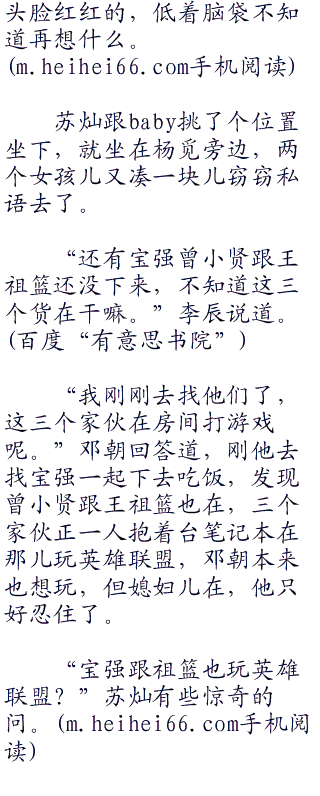 头脸红红的，低着脑袋不知
道再想什么。
(m.heihei66.com手机阅读)
苏灿跟baby挑了个位置
坐下，就坐在杨觅旁边，两
个女孩儿又凑一块儿窃窃私
语去了。
“还有宝强曾小贤跟王
祖篮还没下来，不知道这三
个货在干嘛。”李辰说道。
(百度“有意思书院”)
“我刚刚去找他们了，
这三个家伙在房间打游戏
呢。”邓朝回答道，刚他去
找宝强一起下去吃饭，发现
曾小贤跟王祖篮也在，三个
家伙正一人抱着台笔记本在
那儿玩英雄联盟，邓朝本来
也想玩，但媳妇儿在，他只
好忍住了。
“宝强跟祖篮也玩英雄
联盟？”苏灿有些惊奇的
问。(m.heihei66.com手机阅
读)